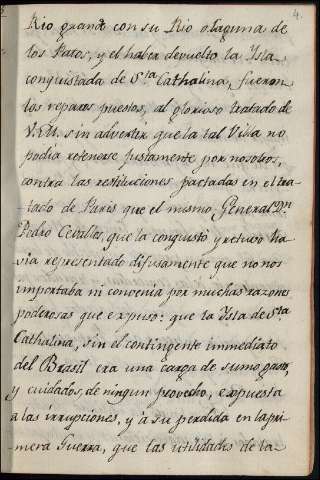 4.
Rio grande con su Rio o laguna de
los Patos, y el haber devuelto la Ysla
conquistada de S.ta Cathalina, fueron
los reparos puestos, al glorioso tratado de
V.E.M. sin advertir que la tal Villa no
podia retenerse justamente por nosotros,
contra las restituciones pactadas en el tra-
tado de Paris que el mismo General D.n
Pedro Cevallos, que la conquistó y retuvo ha-
via representado difusamente que no nos
importaba ni convenia por muchas razones
poderosas que expuso: que la Ysla de S.ta
Cathalina, sin el contingente immediato
del Brasil era una carga de sumo gasto,
y cuidados, de ningun provecho, expuesta
a las irrupciones, y á su perdida en la pri-
mera Guerra, que las utilidades de la